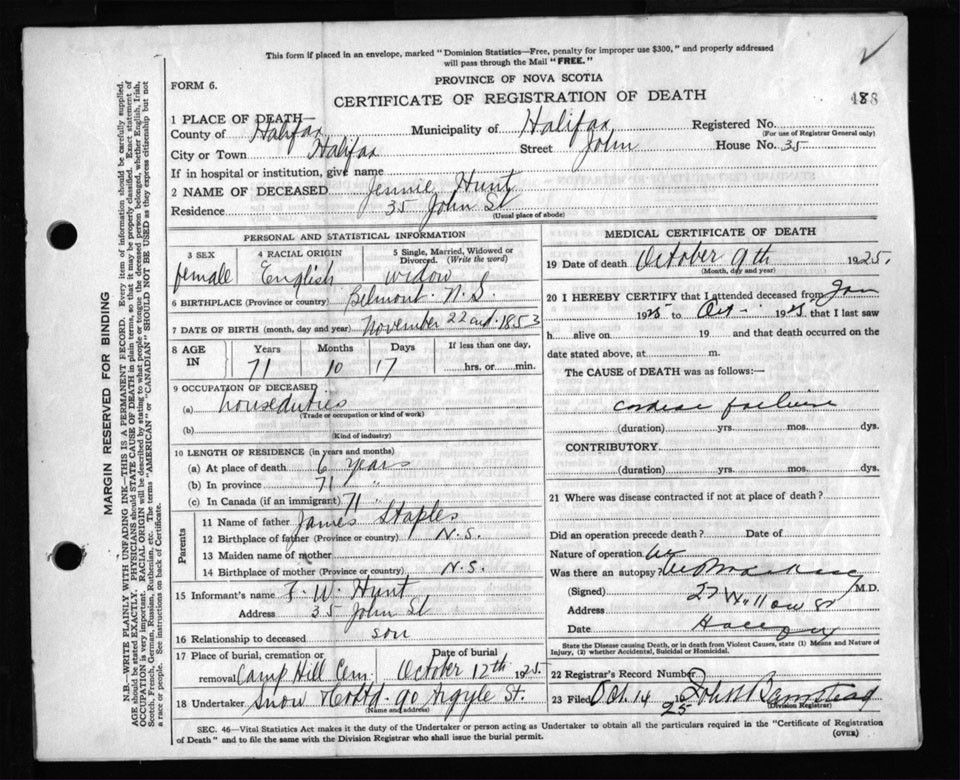 This form if placed in an envelope, marked "Dominion Statistics—Free, penalty for improper use $300," and properly addressed
will pass through the Mail "FREE."
FORM 6.
PROVINCE OF NOVA SCOTIA
CERTIFICATE OF REGISTRATION OF DEATH
488
1 PLACE OF DEATH—
County of Halifax Municipality of Halifax Registered No.
(For use of Registrar General only)
City or Town Halifax Street John House No. 35
If in hospital or institution, give name
2 NAME OF DECEASED Jennie Hunt
Residence 35 John St
(Usual place of abode)
PERSONAL AND STATISTICAL INFORMATION
3 SEX 4 RACIAL ORIGIN 5 Single, Married, Widowed or Divorced. (Write the word)
female English widow
6 BIRTHPLACE (Province or country) Belmont N.S.
7 DATE OF BIRTH (month, day and year) November 22nd 1853
8 AGE IN Years Months Days If less than one day,
71 10 17 hrs. or min.
9 OCCUPATION OF DECEASED
(a) houseduties
(Trade or occupation or kind of work)
(b)
(Kind of industry)
10 LENGTH OF RESIDENCE (in years and months)
(a) At place of death 6 Years
(b) In province 71 "
(c) In Canada (if an immigrant) 71 "
Parents
11 Name of father James Staples
12 Birthplace of father (Province or country) N.S.
13 Maiden name of mother
14 Birthplace of mother (Province or country) N.S.
15 Informant's name F. W. Hunt
Address 35 John St
16 Relationship to deceased son
17 Place of burial, cremation or removal Camp Hill Cem. Date of burial October 12th 1925
18 Undertaker Snow & Co Ltd. 90 Argyle St.
(Name and address)
MEDICAL CERTIFICATE OF DEATH
19 Date of death October 9th 1925.
(Month, day and year)
20 I HEREBY CERTIFY that I attended deceased from Jan
1925 to Oct 1925 that I last saw
h alive on 19 and that death occurred on
date stated above, at m.
The CAUSE of DEATH was as follows:
cardiac failure
(duration) yrs. mos. dys.
CONTRIBUTORY
(duration) yrs. mos. dys.
21 Where was disease contracted if not at place of death?
Did an operation precede death? Date of
Nature of operation
Was there an autopsy
(Signed) M.D.
Address 27 Willow St
Date
State the Disease causing Death, or in death from Violent Causes, state (1) Means and Nature of
Injury, (2) whether Accidental, Suicidal or Homicidal.
22 Registrar's Record Number
23 Filed Oct. 14 1925 John Barnstead
(Division Registrar)
SEC. 46—Vital Statistics Act makes it the duty of the Undertaker or person acting as Undertaker to obtain all the particulars required in the "Certificate of Registration
of Death" and to file the same with the Division Registrar who shall issue the burial permit.
(OVER)
MARGIN RESERVED FOR BINDING
N.B.—WRITE PLAINLY WITH UNFADING INK—THIS IS A PERMANENT RECORD. Every item of information should be carefully supplied.
AGE should be stated EXACTLY. PHYSICIANS should STATE CAUSE OF DEATH in plain terms, so that it may be properly classified. Exact statement of
OCCUPATION is very important. RACIAL ORIGIN will be described by stating to what people or tongue the deceased person belonged, whether English, Irish,
Scotch, French, German, Russian, Ruthenian, etc. The terms "AMERICAN" or "CANADIAN" SHOULD NOT BE USED as they express citizenship but not
a race or people. See instructions on back of Certificate.